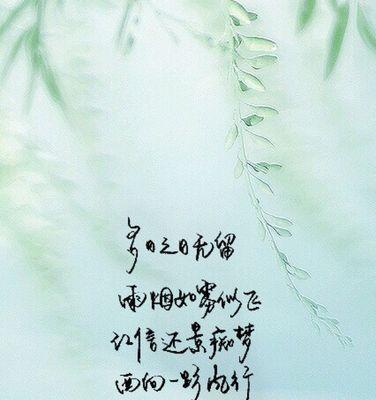 岁日之日无留
雨烟如雾似飞
让信还景痴梦
西向一路风行